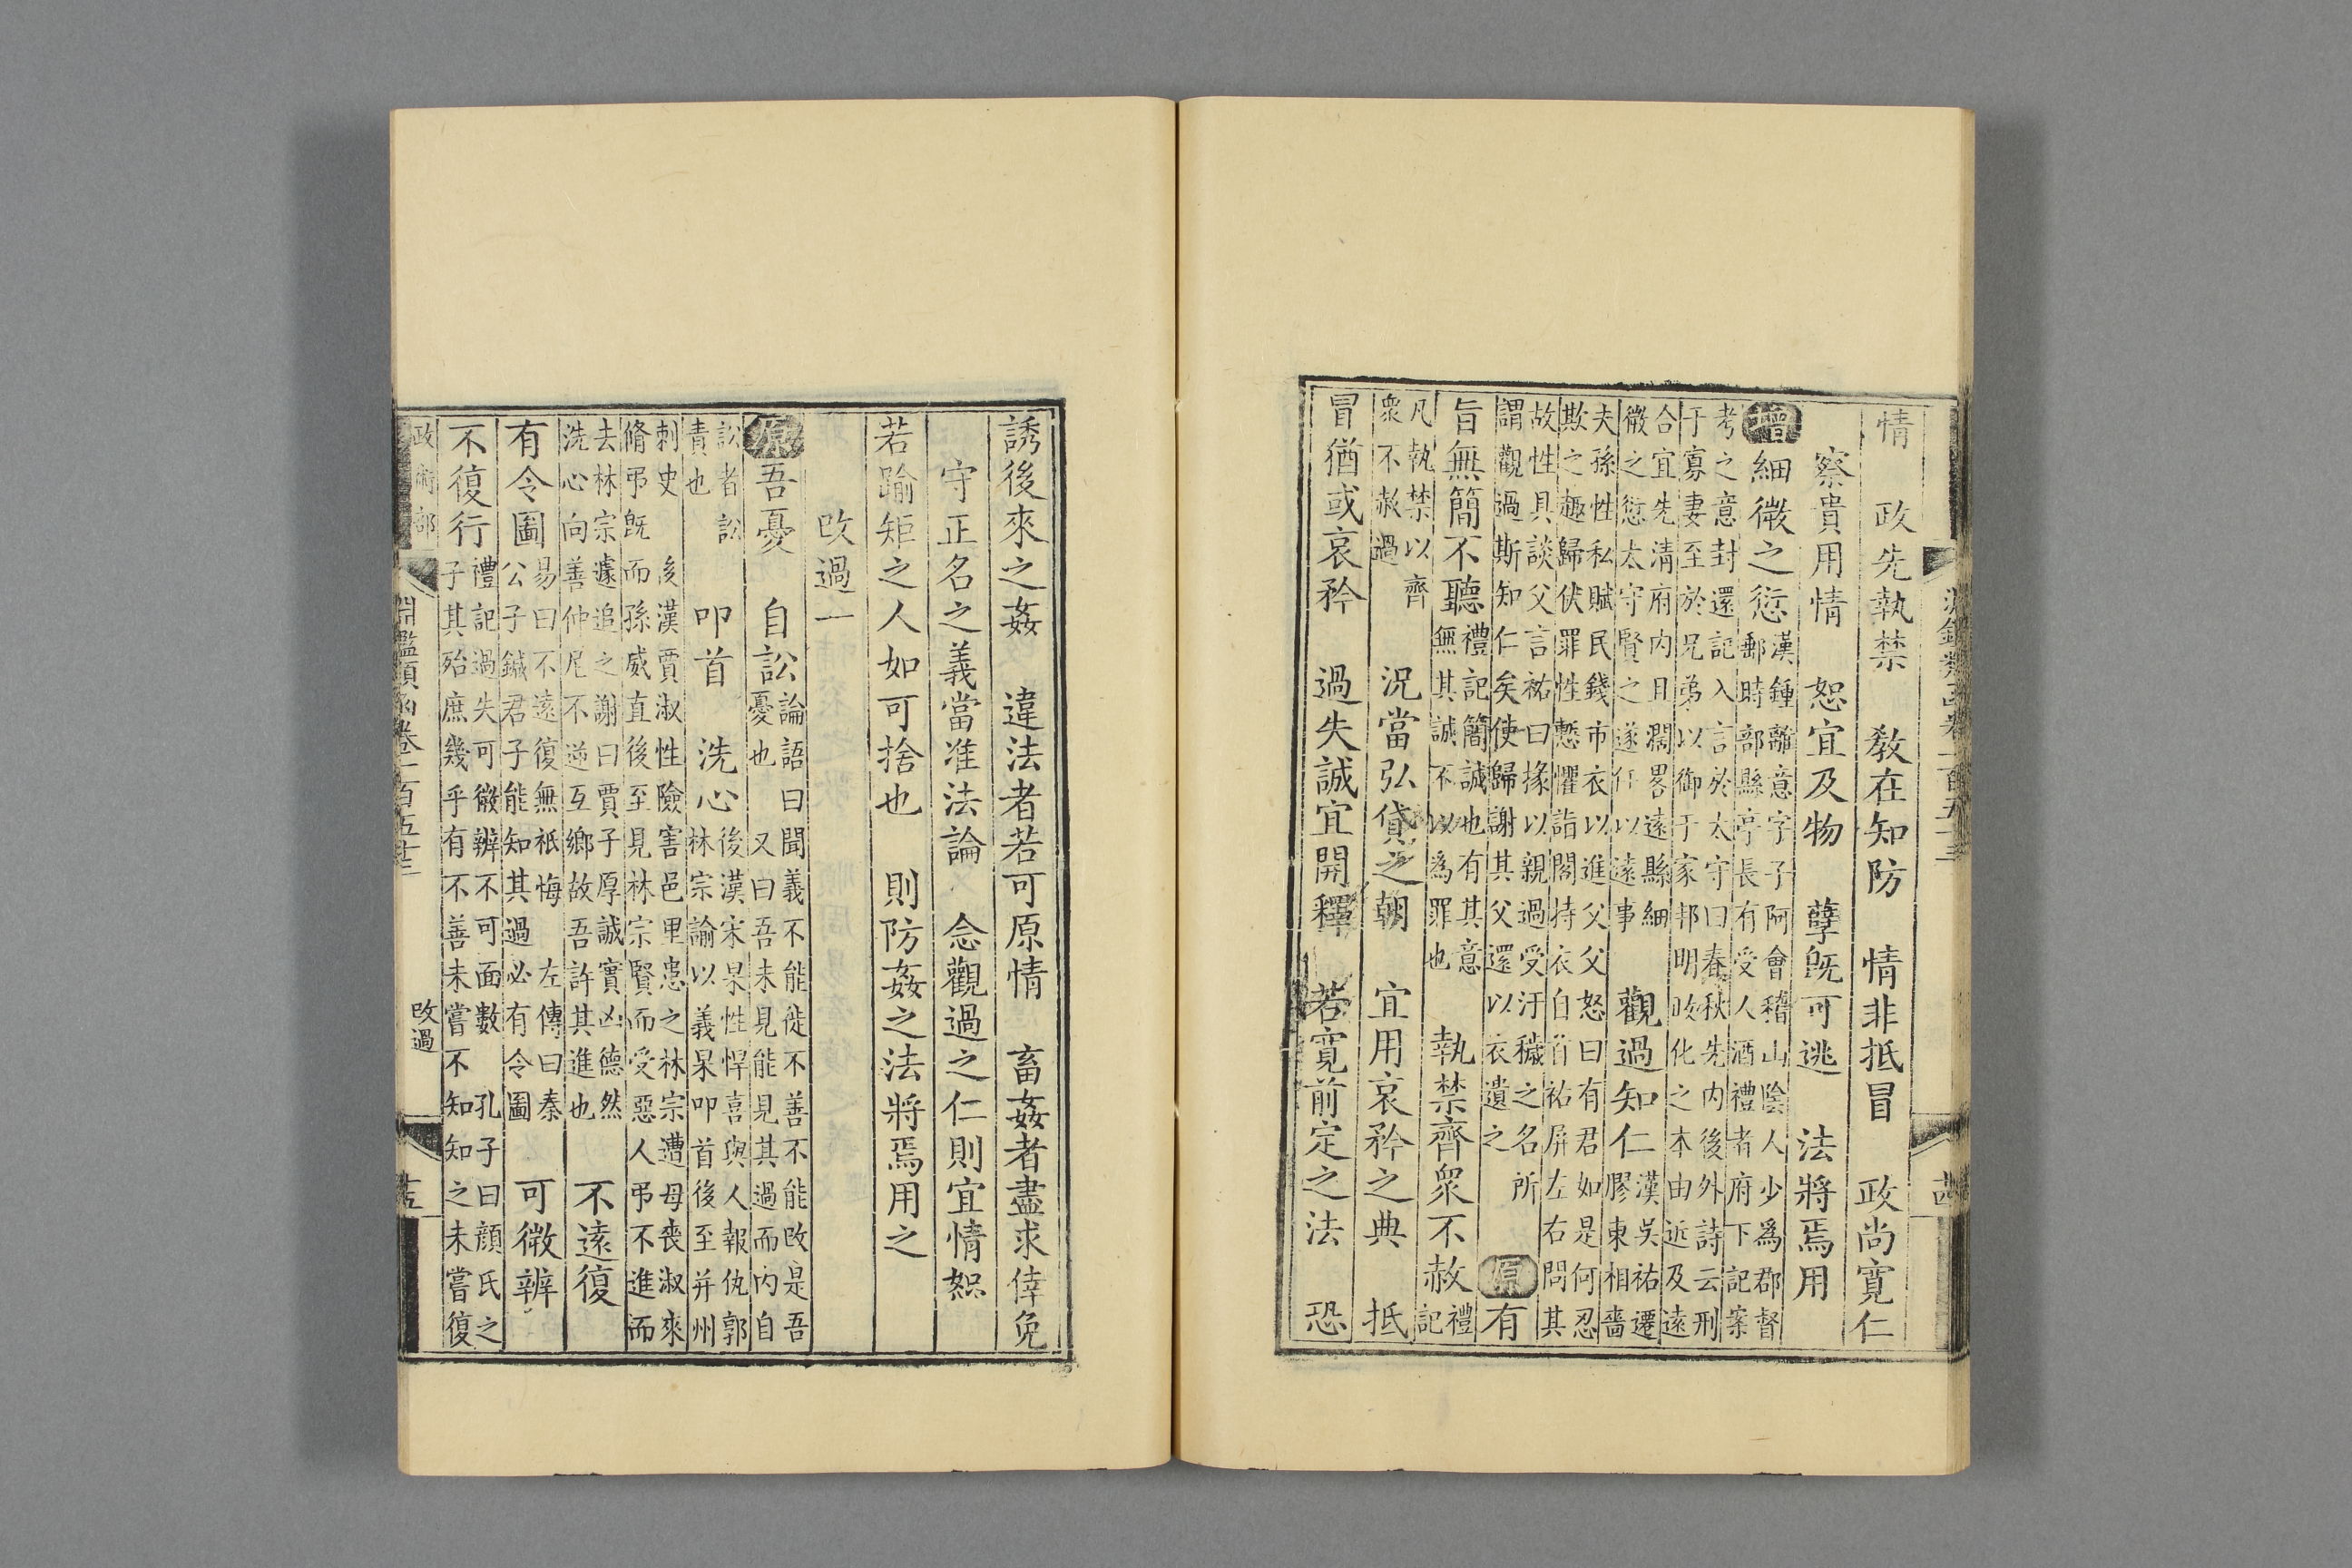 情　政先執禁　教在知防　情非抵冒　政尚寬仁
察貴用情　恕宜及物　孽旣可逃　法將焉用
增細微之愆漢鍾離意字子阿會稽山陰人少爲郡督
郵時部縣亭長有受人酒禮者府下記案
考之意封還記入言於太守曰春秋先內後外詩云刑
于寡妻至於兄弟以御于家邦明政化之本由近及遠
合宜先淸府內且濶畧遠縣細
微之愆太守賢之遂任以遠事　觀過知仁漢吳祐遷
膠東相嗇
夫孫性私賦民錢市衣以進父父怒曰有君如是何忍
欺之趣歸伏罪性慙懼詣閤持衣自首祐屏左右問其
故性具談父言祐曰掾以親過受汙穢之名所
謂觀過斯知仁矣使歸謝其父還以衣遺之　原有
旨無簡不聽禮記簡誠也有其意
無其誠不以爲罪也　執禁齊衆不赦禮
記
凡執禁以齊
衆不赦過　況當弘貸之朝　宜用哀矜之典　抵
冒猶或哀矜　過失誠宜開釋　若寬前定之法　恐
誘後來之姦　違法者若可原情　畜姦者盡求倖免
守正名之義當准法論　念觀過之仁則宜情恕
若踰矩之人如可捨也　則防姦之法將焉用之
改過一
原吾憂　自訟論語曰聞義不能徙不善不能改是吾
憂也　又曰吾未見能見其過而內自
訟者訟
責也　叩首　洗心後漢宋杲性悍喜與人報仇郭
林宗諭以義杲叩首後至并州
刺史　後漢賈淑性險害邑里患之林宗遭母喪淑來
脩弔旣而孫威直後至見林宗賢而受惡人弔不進而
去林宗遽追之謝曰賈子厚誠實凶德然
洗心向善仲尼不逆互鄉故吾許其進也　不遠復
有令圖易曰不遠復無祇悔　左傳曰秦
公子鍼君子能知其過必有令圖　可微辨
不復行禮記過失可微辨不可面數　孔子曰顔氏之
子其殆庶幾乎有不善未嘗不知知之未嘗復
政術部
淵鑑類函卷一百五十三
改過